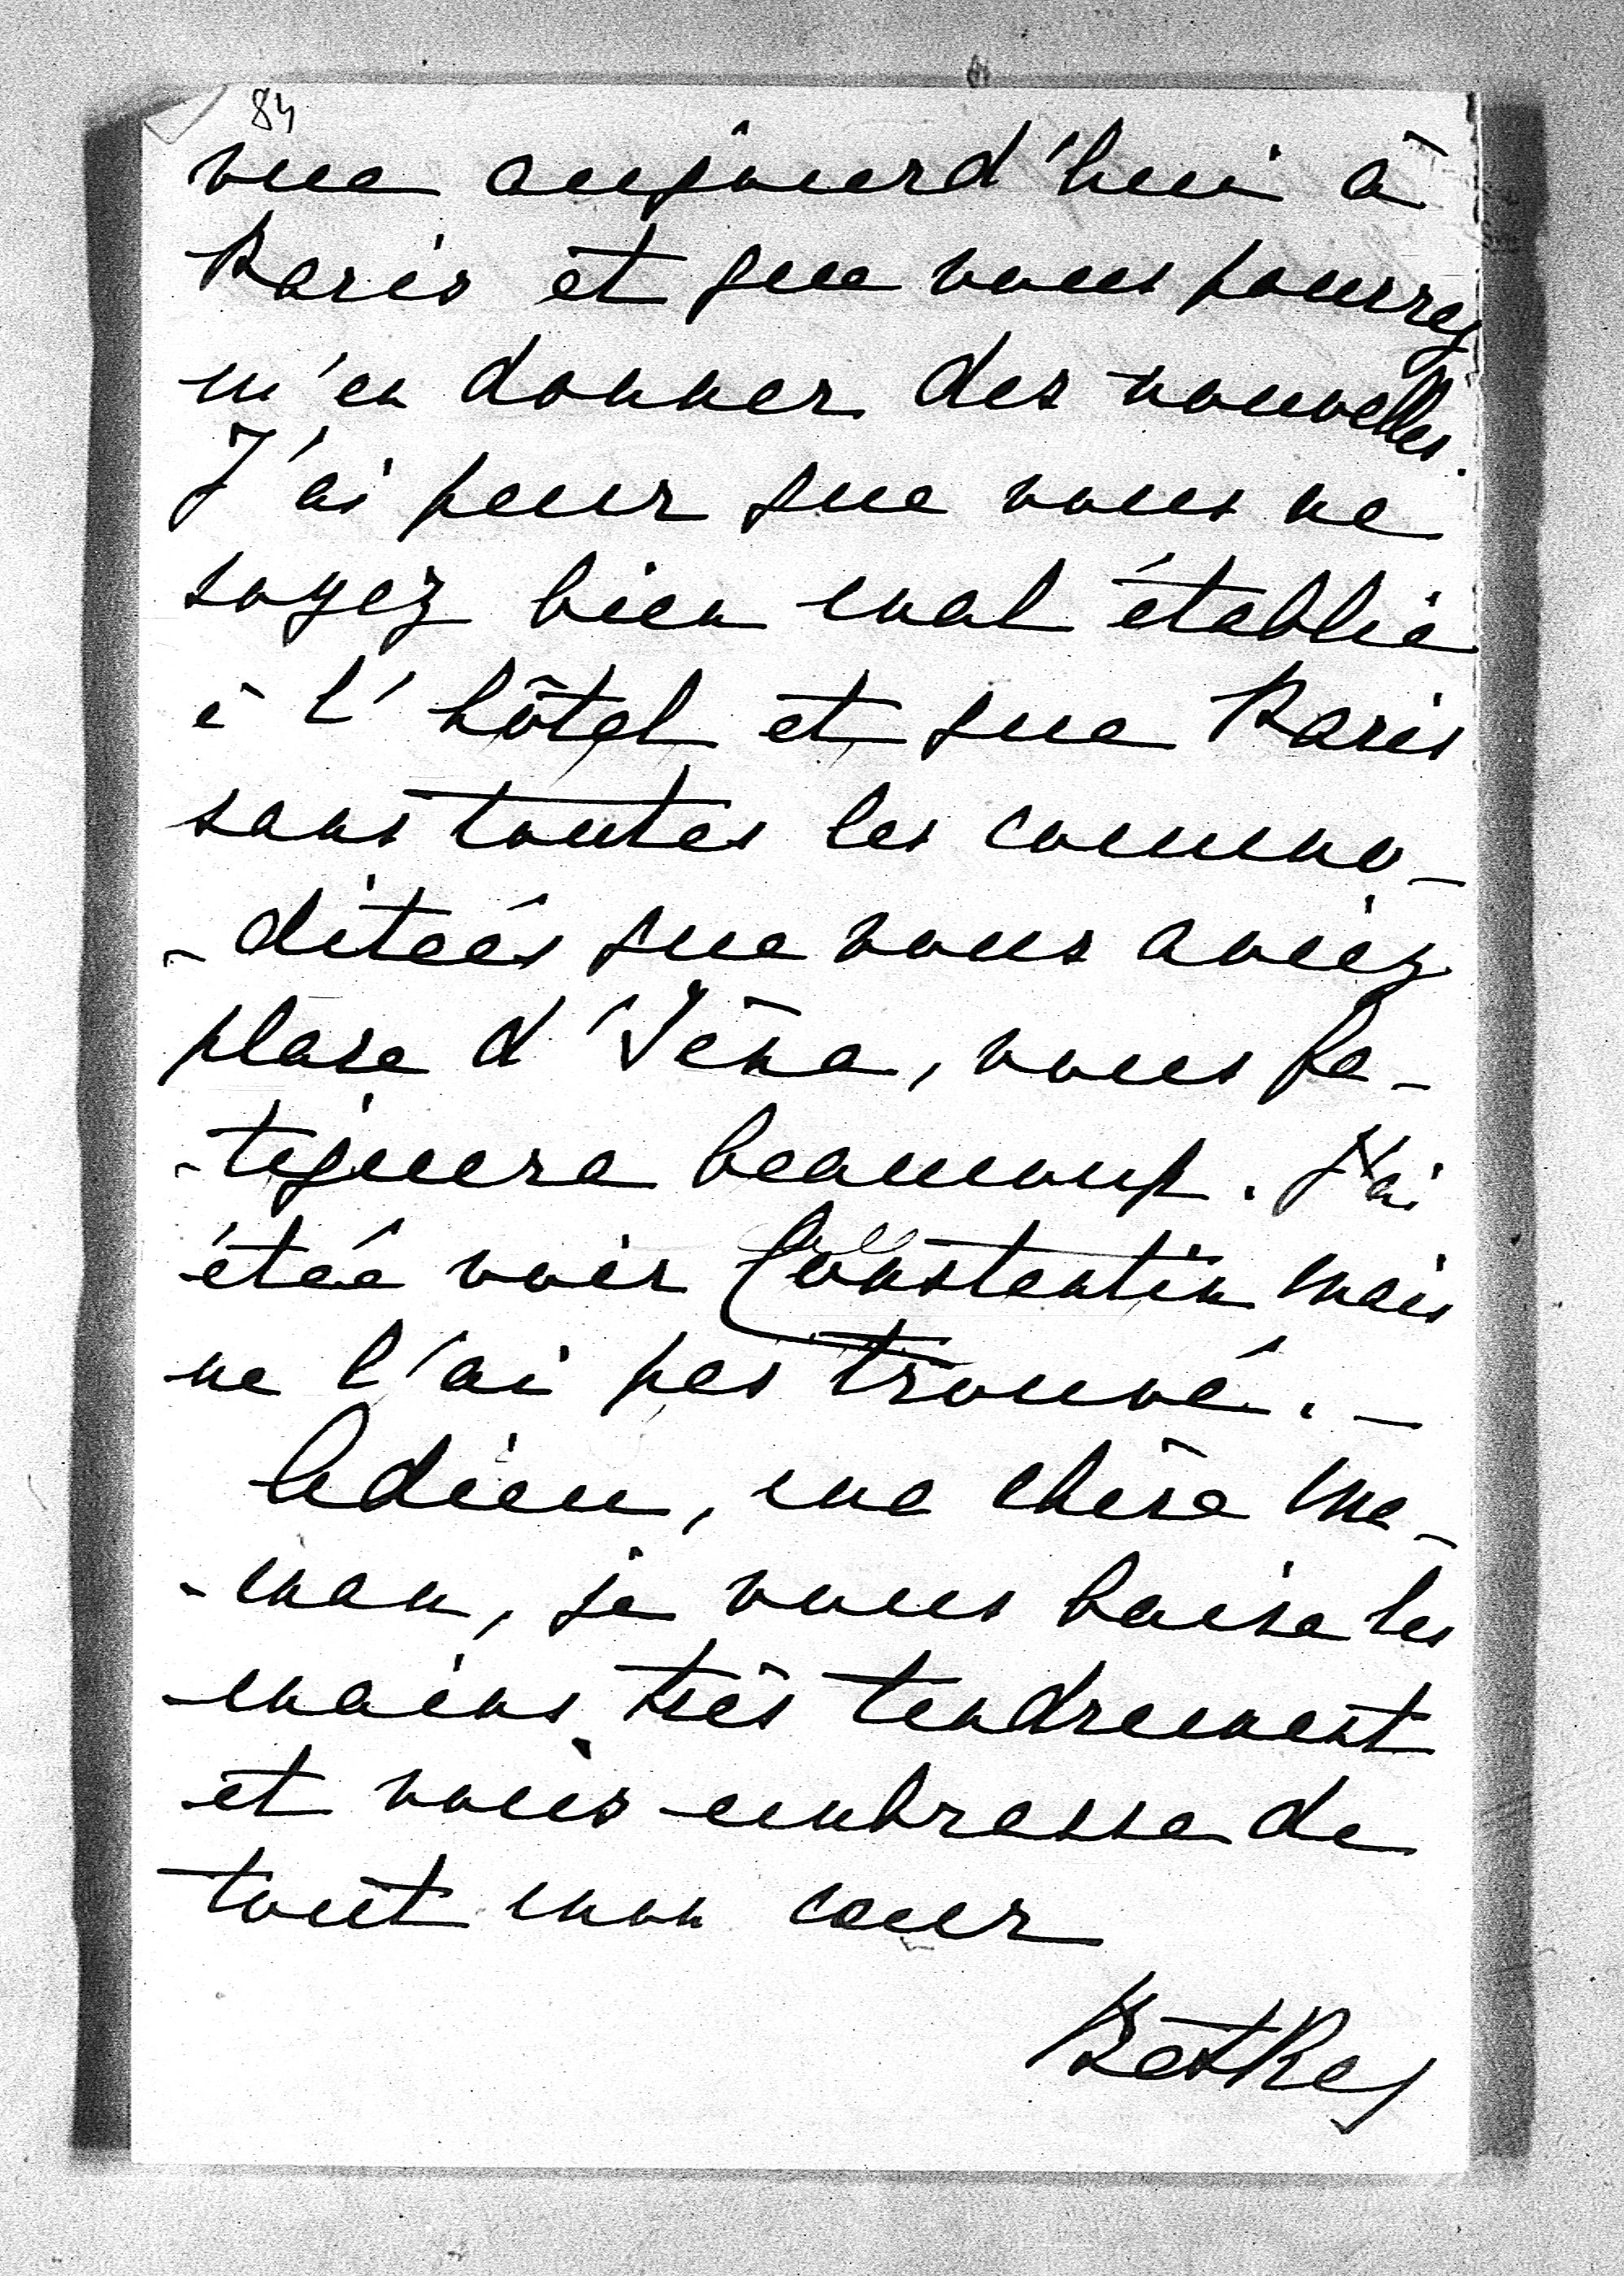 84
vue aujourd'hui à
Paris et que vous pourrez
m'en donner des nouvelles.
J'ai peur que vous ne
soyez bien mal établie
à l'hôtel et que Paris
sans toutes les commo-
-diteés que vous aviez
place d'Iéna, vous fa-
-tiguera beaucoup. J'ai
éteé voir Constantin mais
ne l'ai pas trouvé. -
Adieu, ma chère ma-
-man, je vous baise les
mains très tendrement
et vous embrasse de
tout mon cœur